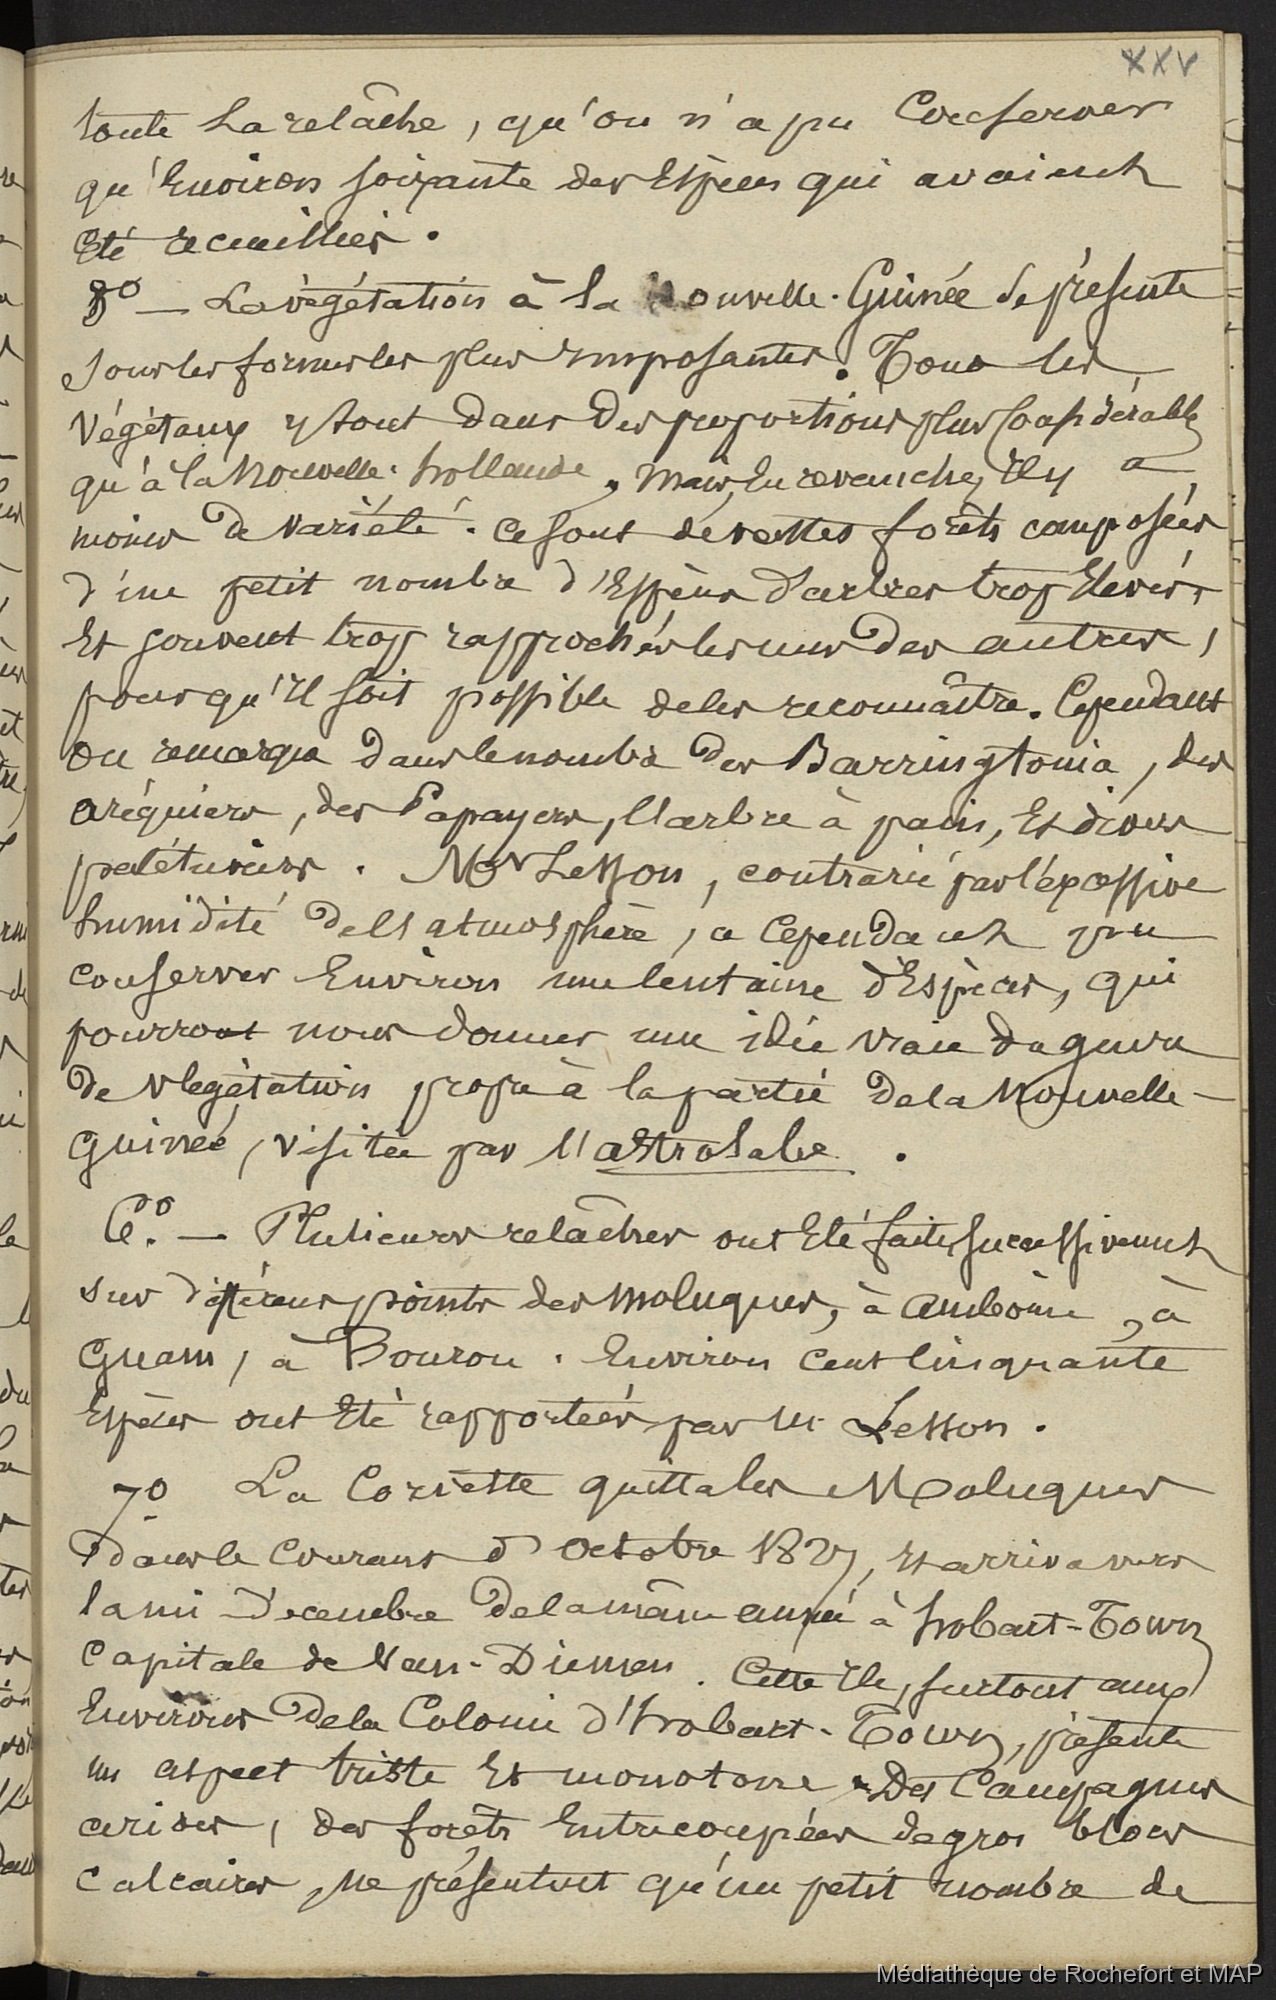 XXV
toute la relâche, qu'on n'a pu Conserver
qu'Environ soixante des Espèces qui avaient
Eté recueillies.
5º — La végétation à la Nouvelle-Guinée se présente
sous les formes les plus imposantes. Tous les
Végétaux y sont dans des proportions plus Considérables
qu'à la Nouvelle-hollande, mais, En revanche, Il y a
moins de variété. ce sont de vastes forêts composées
d'un petit nombre d'Espèces d'arbres trop Elevés,
Et souvent trop rapprochés les uns des autres,
pour qu'Il soit possible de les reconnaître. Cependant
on remarqua dans le nombre des Barringtonia, des
aréquiers, des Papayers, l'arbre à pain, Et divers
palétuviers. Mr Lesson, contrarié par l'excessive
humidité de l'atmosphère, a Cependant pu
conserver Environ une Centaine d'Espèces, qui
pourront nous donner une idée vraie du genre
de végétation propre à la partie de la Nouvelle-
Guinée, visitée par l'astrolabe.
6º. — Plusieurs relâches ont Eté faites successivement
sur différens points des moluques, à amboine, à
Guam, à Bourou. Environ Cent Cinquante
Espèces ont Eté rapportées par M. Lesson.
7º La Corvette quitta les Moluques
dans le Courant d'Octobre 1827, Et arriva vers
la mi-Décembre de la même année à hobart-Town
Capitale de Van-Diemen. Cette Ile, surtout aux
Environs de la Colonie d'hobart-Town, présente
un aspect triste Et monotone. Des Campagnes
arides, des forêts Entrecoupées de gros blocs
Calcaires, ne présentent qu'un petit nombre de
Médiathèque de Rochefort et MAP